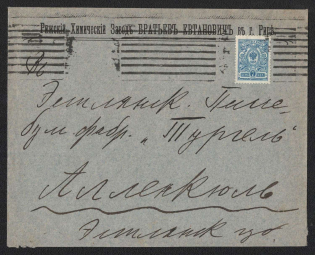 Рижскій Химическій Заводъ БРАТЬЕВЪ ЕВТАНОВИЧЪ въ г. Ригѣ.
Эстлянск. Пиле-
бум фабр. „Тургель"
Алленкюль
Эстлянск